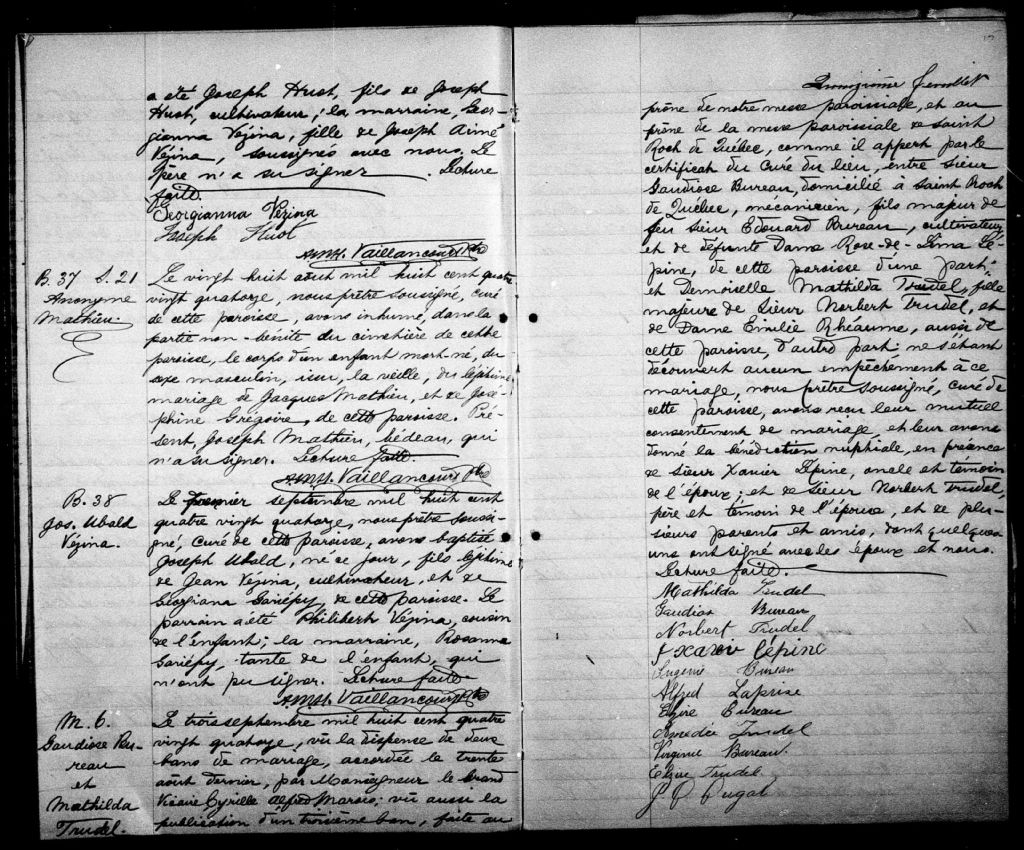 a été Joseph Huot, fils de Joseph
Huot, cultivateur; la marraine, Geor-
gianna Vézina, fille de Joseph Aimé
Vézina, soussignés avec nous. Le
père n'a su signer. Lecture
faite.
Georgianna Vézina
Joseph Huot
Vaillancourt Ptre
B. 37 S. 21
Anonyme
Mathieu.
Le vingt huit aout mil huit cent quatre
vingt quatorze, nous prêtre soussigné, curé
de cette paroisse, avons inhumé, dans la
partie non-bénite du cimetière de cette
paroisse, le corps d'un enfant mort-né, du
sexe masculin, issu, la veille, du légitime
mariage de Jacques Mathieu, et de José-
phine Grégoire, de cette paroisse. Pré-
sent, Joseph Mathieu, bedeau, qui
n'a su signer. Lecture faite.
Vaillancourt Ptre
B. 38
Jos. Ubald
Vézina.
Le premier septembre mil huit cent
quatre vingt quatorze, nous prêtre soussi-
gné, Curé de cette paroisse, avons baptisé
Joseph Ubald, né ce jour, fils légitime
de Jean Vézina, cultivateur, et de
Georgiana Gariépy, de cette paroisse. Le
parrain a été Philibert Vézina, cousin
de l'enfant; la marraine, Rosanna
Gariépy, tante de l'enfant, qui
n'ont pu signer. Lecture faite
Vaillancourt Ptre
M. 6.
Gaudiose Bu-
reau
et
Mathilda
Trudel.
Le trois septembre mil huit cent quatre
vingt quatorze, vû la dispense de deux
bans de mariage, accordée le trente
août dernier, par Monseigneur le Grand
Vicaire Cyrille Alfred Marois; vû aussi la
publication d'un troisième ban, faite au
feuillet
prône de notre messe paroissiale, et au
prône de la messe paroissiale de Saint
Roch de Québec, comme il appert par le
certificat du Curé du lieu, entre Sieur
Gaudiose Bureau, domicilié à Saint Roch
de Québec, mécanicien, fils majeur de
feu Sieur Edouard Bureau, cultivateur
et de défunte Dame Rose-de-Lima Lé-
pine, de cette paroisse d'une part;
et Demoiselle Mathilda Trudel, fille
majeure de Sieur Norbert Trudel, et
de Dame Emilie Rhéaume, aussi de
cette paroisse, d'autre part: ne s'étant
découvert aucun empêchement à ce
mariage, nous prêtre soussigné, curé de
cette paroisse, avons reçu leur mutuel
consentement de mariage, et leur avons
donné la bénédiction nuptiale, en présence
de Sieur Xavier Lépine, oncle et témoin
de l'époux; et de Sieur Norbert Trudel,
père et témoin de l'épouse, et de plu-
sieurs parents et amis, dont quelques
uns ont signé avec les époux et nous.
Lecture faite.
Mathilda Trudel
Gaudiose Bureau
Norbert Trudel
f xavier lépine
Eugenie Bureau
Alfred Laprise
Elzire Bureau
Amédée Trudel
Virginie Bureau.
Trudel